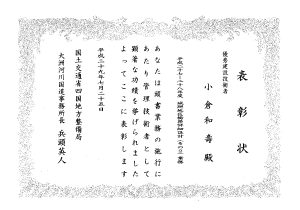 表彰状
優秀建設技術者
小倉和壽殿
平成二十七-二十八年度
あなたは頭書業務の施行に
あたり管理技術者として
顕著な功績を挙げられました
よってここに表彰します
平成二十九年七月二十五日
国土交通省四国地方整備局
大洲河川国道事務所長 兵頭英人